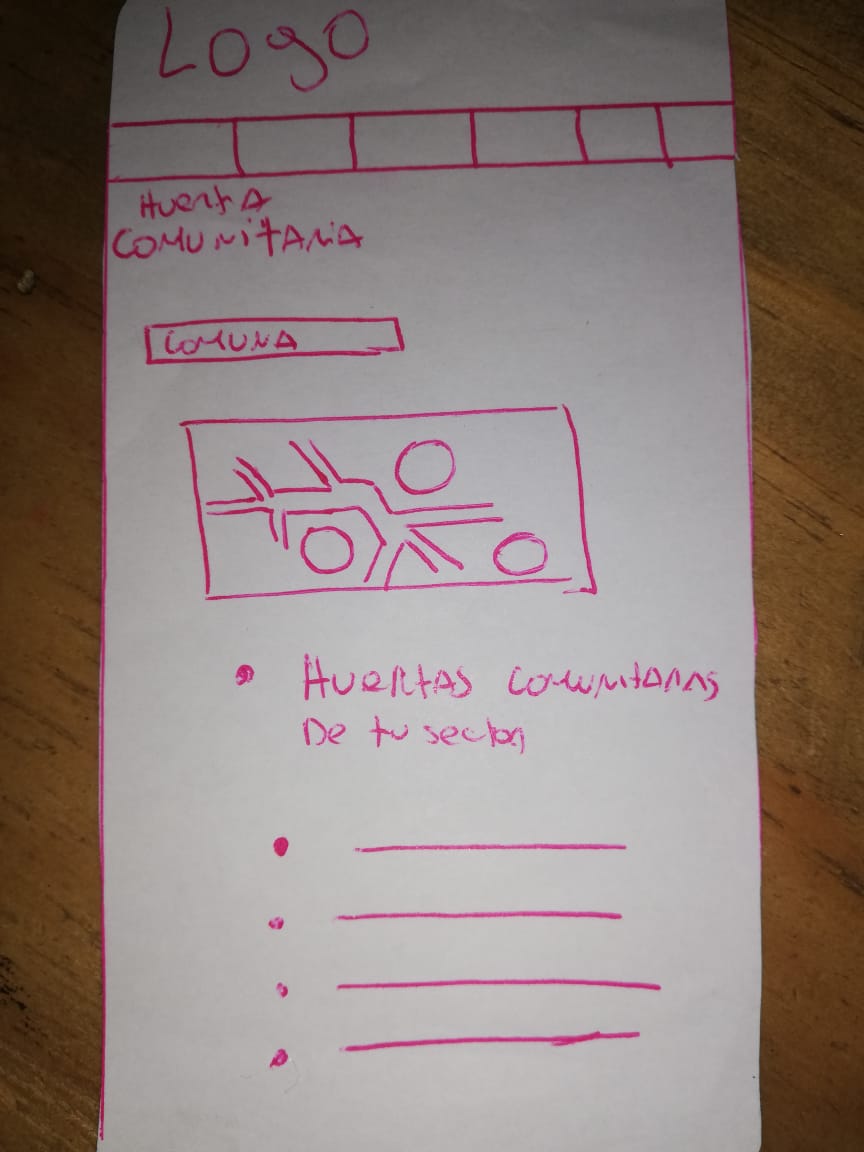 Logo
HUERTA
COMUNITARIA
COMUNA
HUERTAS COMUNITARIAS
De tu sector